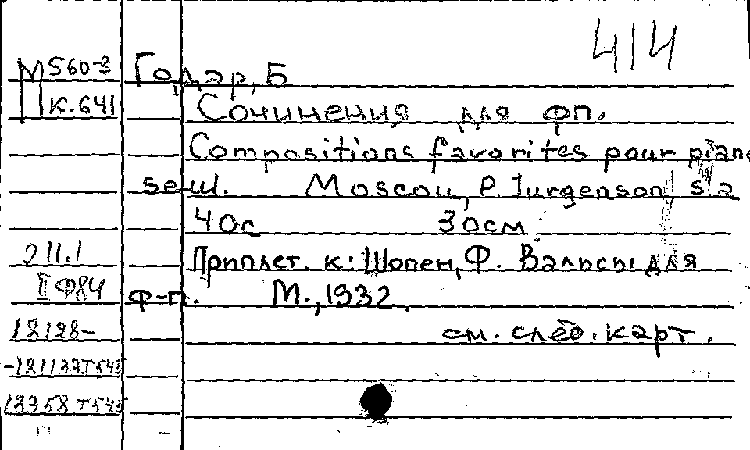 414
М560-3 Годар, Б
К.641 Сочинения для фп.
Compositions favorites pour piano
seul. Moscou, P. Jurgenson, s.a
40с 30см
Э II.1 Приплет. к: Шопен, Ф. Вальсы для
II Ф84 ф-п. М., 1932.
18128- см. след. карт.